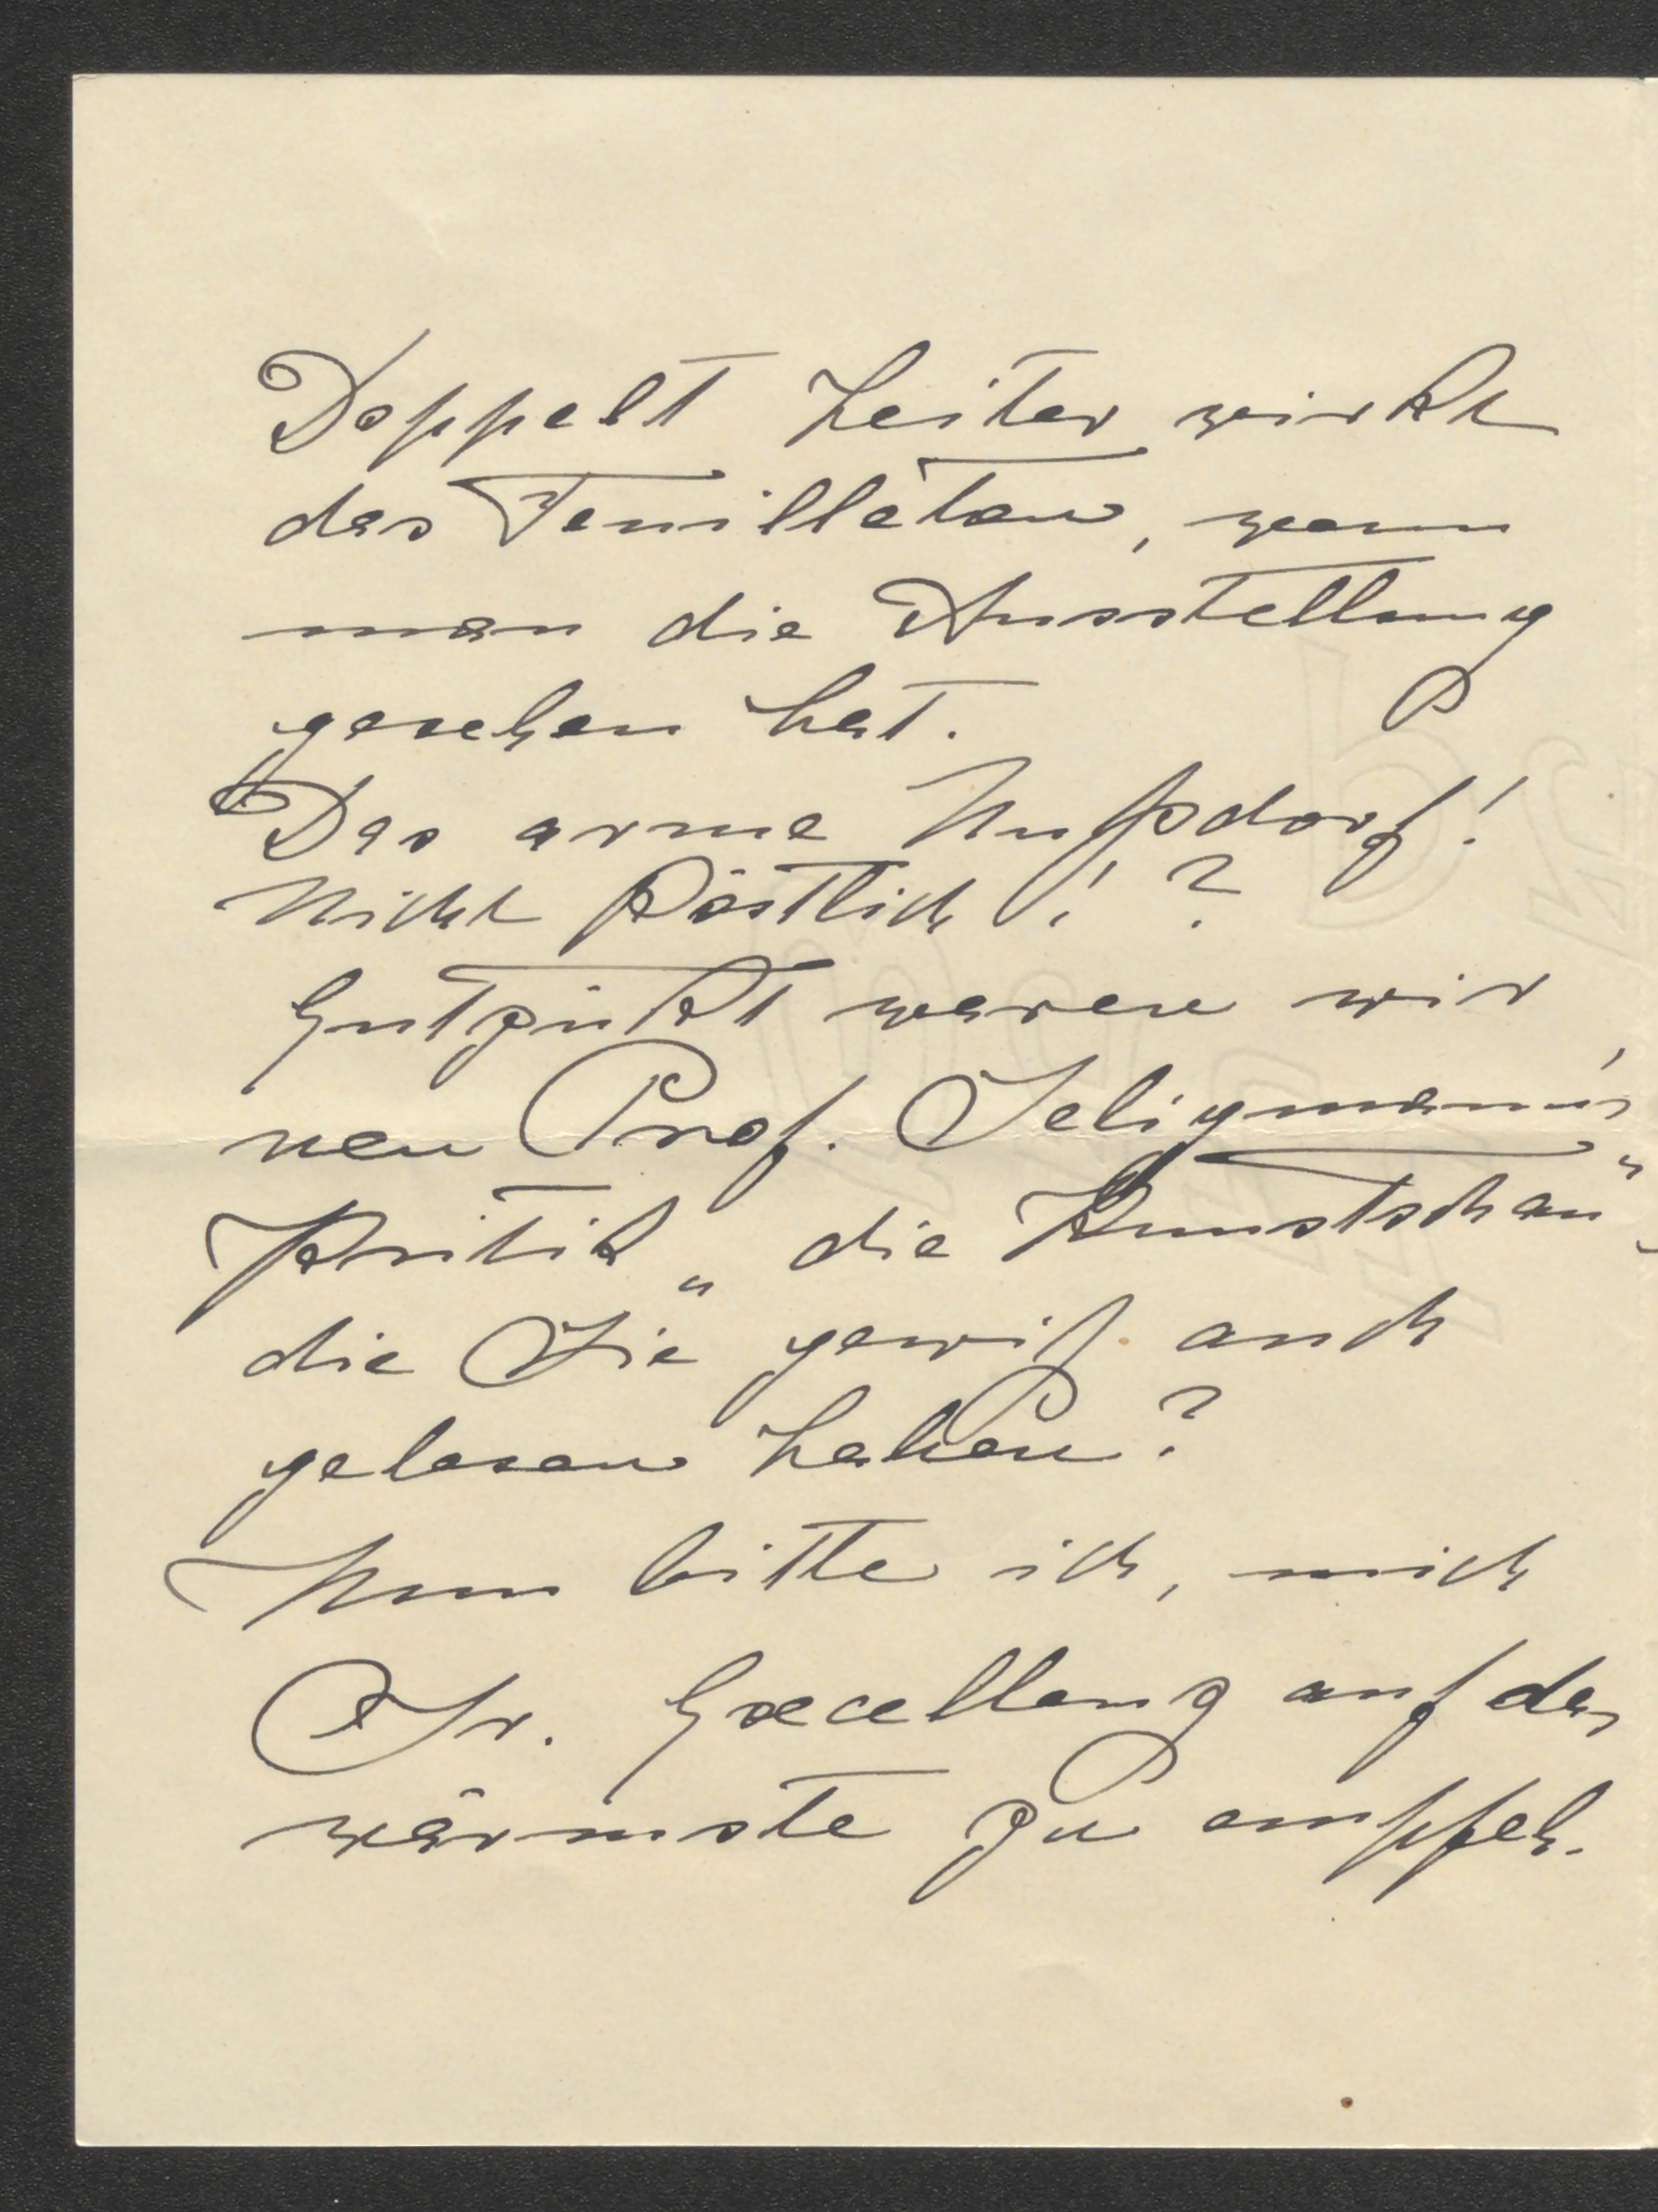 Doppelt heiter wirkt
das Feuilleton, wenn
man die Ausstellung
gesehen hat.
Das arme Nußdorf!
Nicht köstlich!?
Entzückt waren wir
von Prof. Seligmann's
Kritik „die Kunstschau“,
die Sie gewiß auch
gelesen haben?
Nun bitte ich, mich
Sr. Excellenz auf das
wärmste zu empfeh-